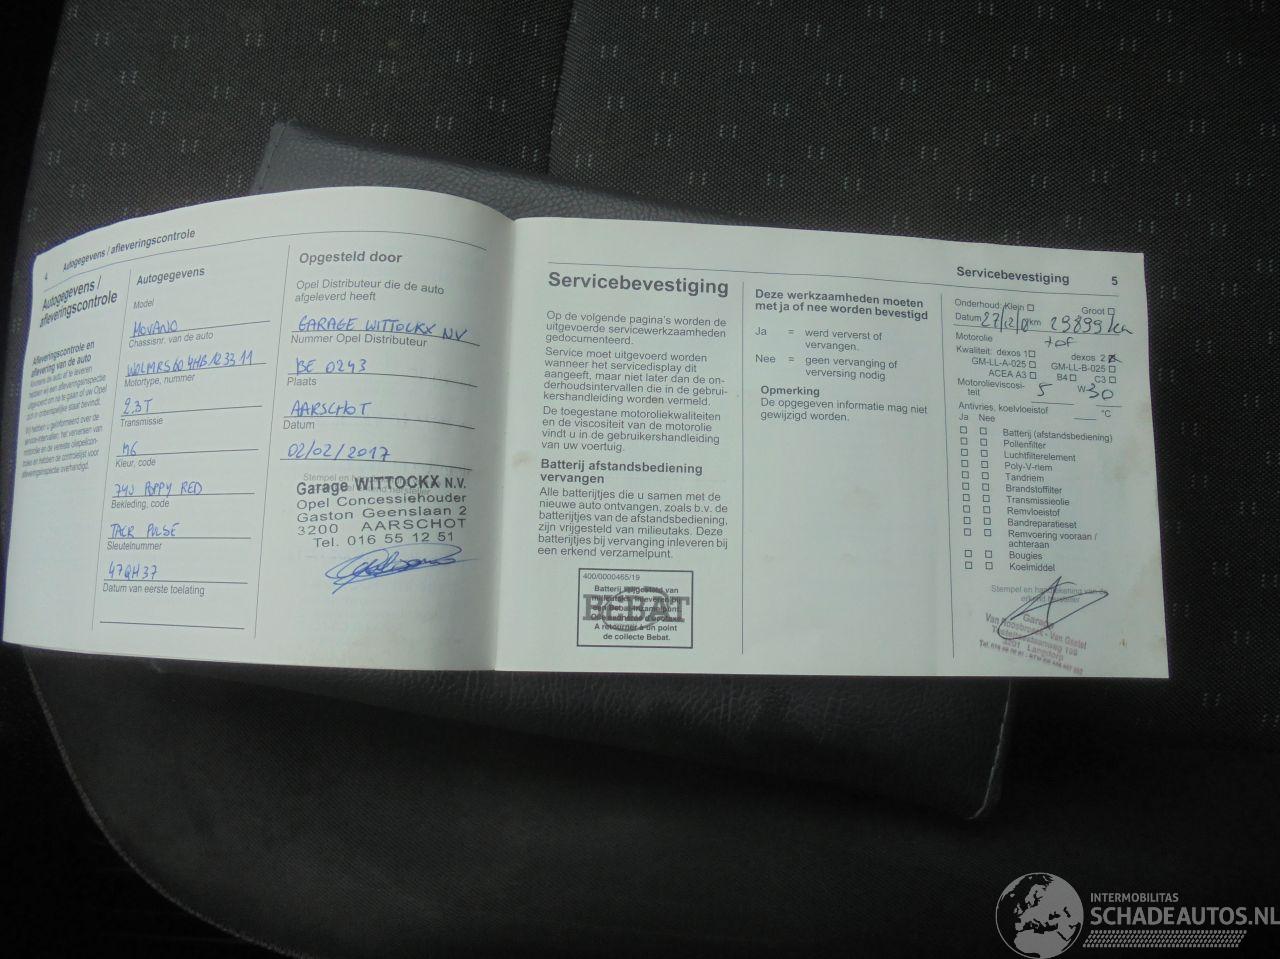 4 Autogegevens / afleveringscontrole
Autogegevens /
afleveringscontrole
Afleveringscontrole en
aflevering van de auto
Autogegevens
Model
MOVANO
Chassisnr. van de auto
Motortype, nummer
2.3T
Transmissie
M6
Kleur, code
74U POPPY RED
Bekleding, code
TACK PULSE
Sleutelnummer
47QH37
Datum van eerste toelating
Opgesteld door
Opel Distributeur die de auto
afgeleverd heeft
GARAGE WITTOCKX NV
Nummer Opel Distributeur
BE 0243
Plaats
AARSCHOT
Datum
02/02/2017
Garage WITTOCKX N.V.
Opel Concessiehouder
Gaston Geenslaan 2
3200 AARSCHOT
Tel. 016 55 12 51
Servicebevestiging
Op de volgende pagina's worden de
uitgevoerde servicewerkzaamheden
gedocumenteerd.
Service moet uitgevoerd worden
wanneer het servicedisplay dit
aangeeft, maar niet later dan de on-
derhoudsintervallen die in de gebrui-
kershandleiding worden vermeld.
De toegestane motoroliekwaliteiten
en de viscositeit van de motorolie
vindt u in de gebruikershandleiding
van uw voertuig.
Batterij afstandsbediening
vervangen
Alle batterijtjes die u samen met de
nieuwe auto ontvangen, zoals b.v. de
batterijtjes van de afstandsbediening,
zijn vrijgesteld van milieutaks. Deze
batterijtjes bij vervanging inleveren bij
een erkend verzamelpunt.
400/0000465/19
Batterij vrijgesteld van
BEBAT
A retourner à un point
de collecte Bebat.
Deze werkzaamheden moeten
met ja of nee worden bevestigd
Ja = werd ververst of
vervangen.
Nee = geen vervanging of
verversing nodig
Opmerking
De opgegeven informatie mag niet
gewijzigd worden.
Servicebevestiging 5
Onderhoud: Klein Groot
Datum km 29899 km
Motorolie
Kwaliteit: dexos 1 dexos 2
GM-LL-A-025 GM-LL-B-025
ACEA A3 B4 C3
Motorolieviscosi-
teit 5 W 30
Antivries, koelvloeistof °C
Ja Nee
Batterij (afstandsbediening)
Pollenfilter
Luchtfilterelement
Poly-V-riem
Tandriem
Brandstoffilter
Transmissieolie
Remvloeistof
Bandreparatieset
Remvoering vooraan /
achteraan
Bougies
Koelmiddel
Stempel en handtekening van de
erkend hersteller
Garage
Van Roosbroeck - Van Gestel
3201 Langdorp
INTERMOBILITAS
SCHADEAUTOS.NL